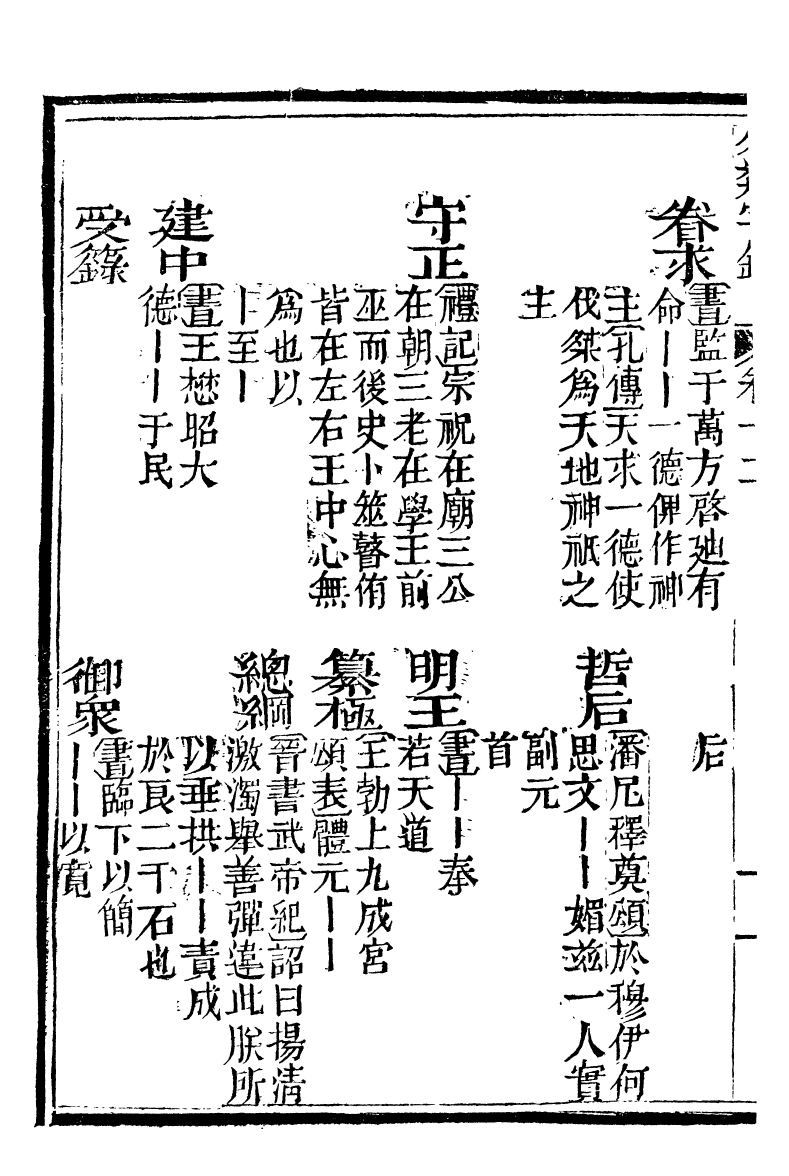 眷求
書監于萬方啓廸有
命｜｜一德俾作神
主孔傳天求一德使
伐桀爲天地神祇之
主
守正
禮記宗祝在廟三公
在朝三老在學王前
巫而後史卜筮瞽侑
皆在左右王中心無
爲也以
｜至｜
建中
書王懋昭大
德｜｜于民
受籙
后
哲后
潘尼釋奠頌於穆伊何
思文｜｜媚兹一人實
副元
首
明王
書｜｜奉
若天道
纂極
王勃上九成宮
頌表體元｜｜
總綱
晉書武帝紀詔曰揚清
激濁舉善彈違此朕所
以垂拱｜｜責成
於良二千石也
御衆
書臨下以簡
｜｜以寬